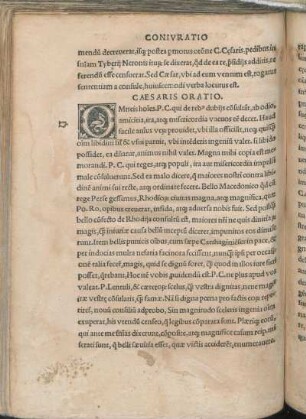 CONIVRATIO
mendũ decreuerat, isq; postea
sulam Tyberij Neronis
ferendũ esse censuerat. Sed Cæsar, vbi ad eum ventum est, rogatus
sententiam a consule, huiuscemodi verba locutus est.
CAESARIS ORATIO.
OMneis hoĩes. P. C. qui de reb⁹ dubijs cõsultãt, ab odio,
amicitia, ira, atq; misericordia vacuos eẽ decet. Haud
facile aĩus vep̃ prouidet, vbi illa officiũt, neq; quisq̃
oĩm libidini
possidet, ea dĩatur, animus nihil valet. Magna mihi copia est
morandi. P. C. qui reges, atq; populi, ira aut misericordia impulsi
male cõsuluerint. Sed ea malo dicere, q̃ maiores nostri contra
dinẽ animi sui recte, atq; ordinate fecere. Bello Macedonico qđ
rege Perse gessimus, Rhodiorũ ciuitas magna, atq; magnifica,
Po. Ro. opibus creuerat, infida, atq; aduersa nobis fuit. Sed postq̃
bello cõfecto de Rhodijs consultũ est, maiores nr̃i ne quis diuitiaꝝ
magis, q̃ iniuriæ causa bellũ inceptũ diceret, impunitos eos dimise
runt. Item bellis punicis oĩbus, cum sæpe Carthaginiẽses in pace, &
per inducias multa nefaria facinora fecissent,
talia fecere, magis, quid se dignũ foret,
posset, q̃rebant. Hoc idẽ vobis prouidendũ est. P. C. ne plus apud vos
valeat. P. Lentuli, & cæteroꝝ scelus, q̃ vestra dignitas, neue magis
iræ vestræ cõsulatis, q̃ famæ. Nã si digna pœna pro factis eoꝝ repe
ritur, nouũ consiliũ adprobo. Sin magnitudo sceleris ingenia oĩm
exuperat, his vtendũ censeo, q̃ legibus cõparata sunt. Pleriq; eoꝝ,
qui ante me sñias dixerunt, cõposite, atq; magnifice casum reip. mi
serati sunt, q̃ belli sæuitia esset, quæ victis acciderẽt, enumerauere.